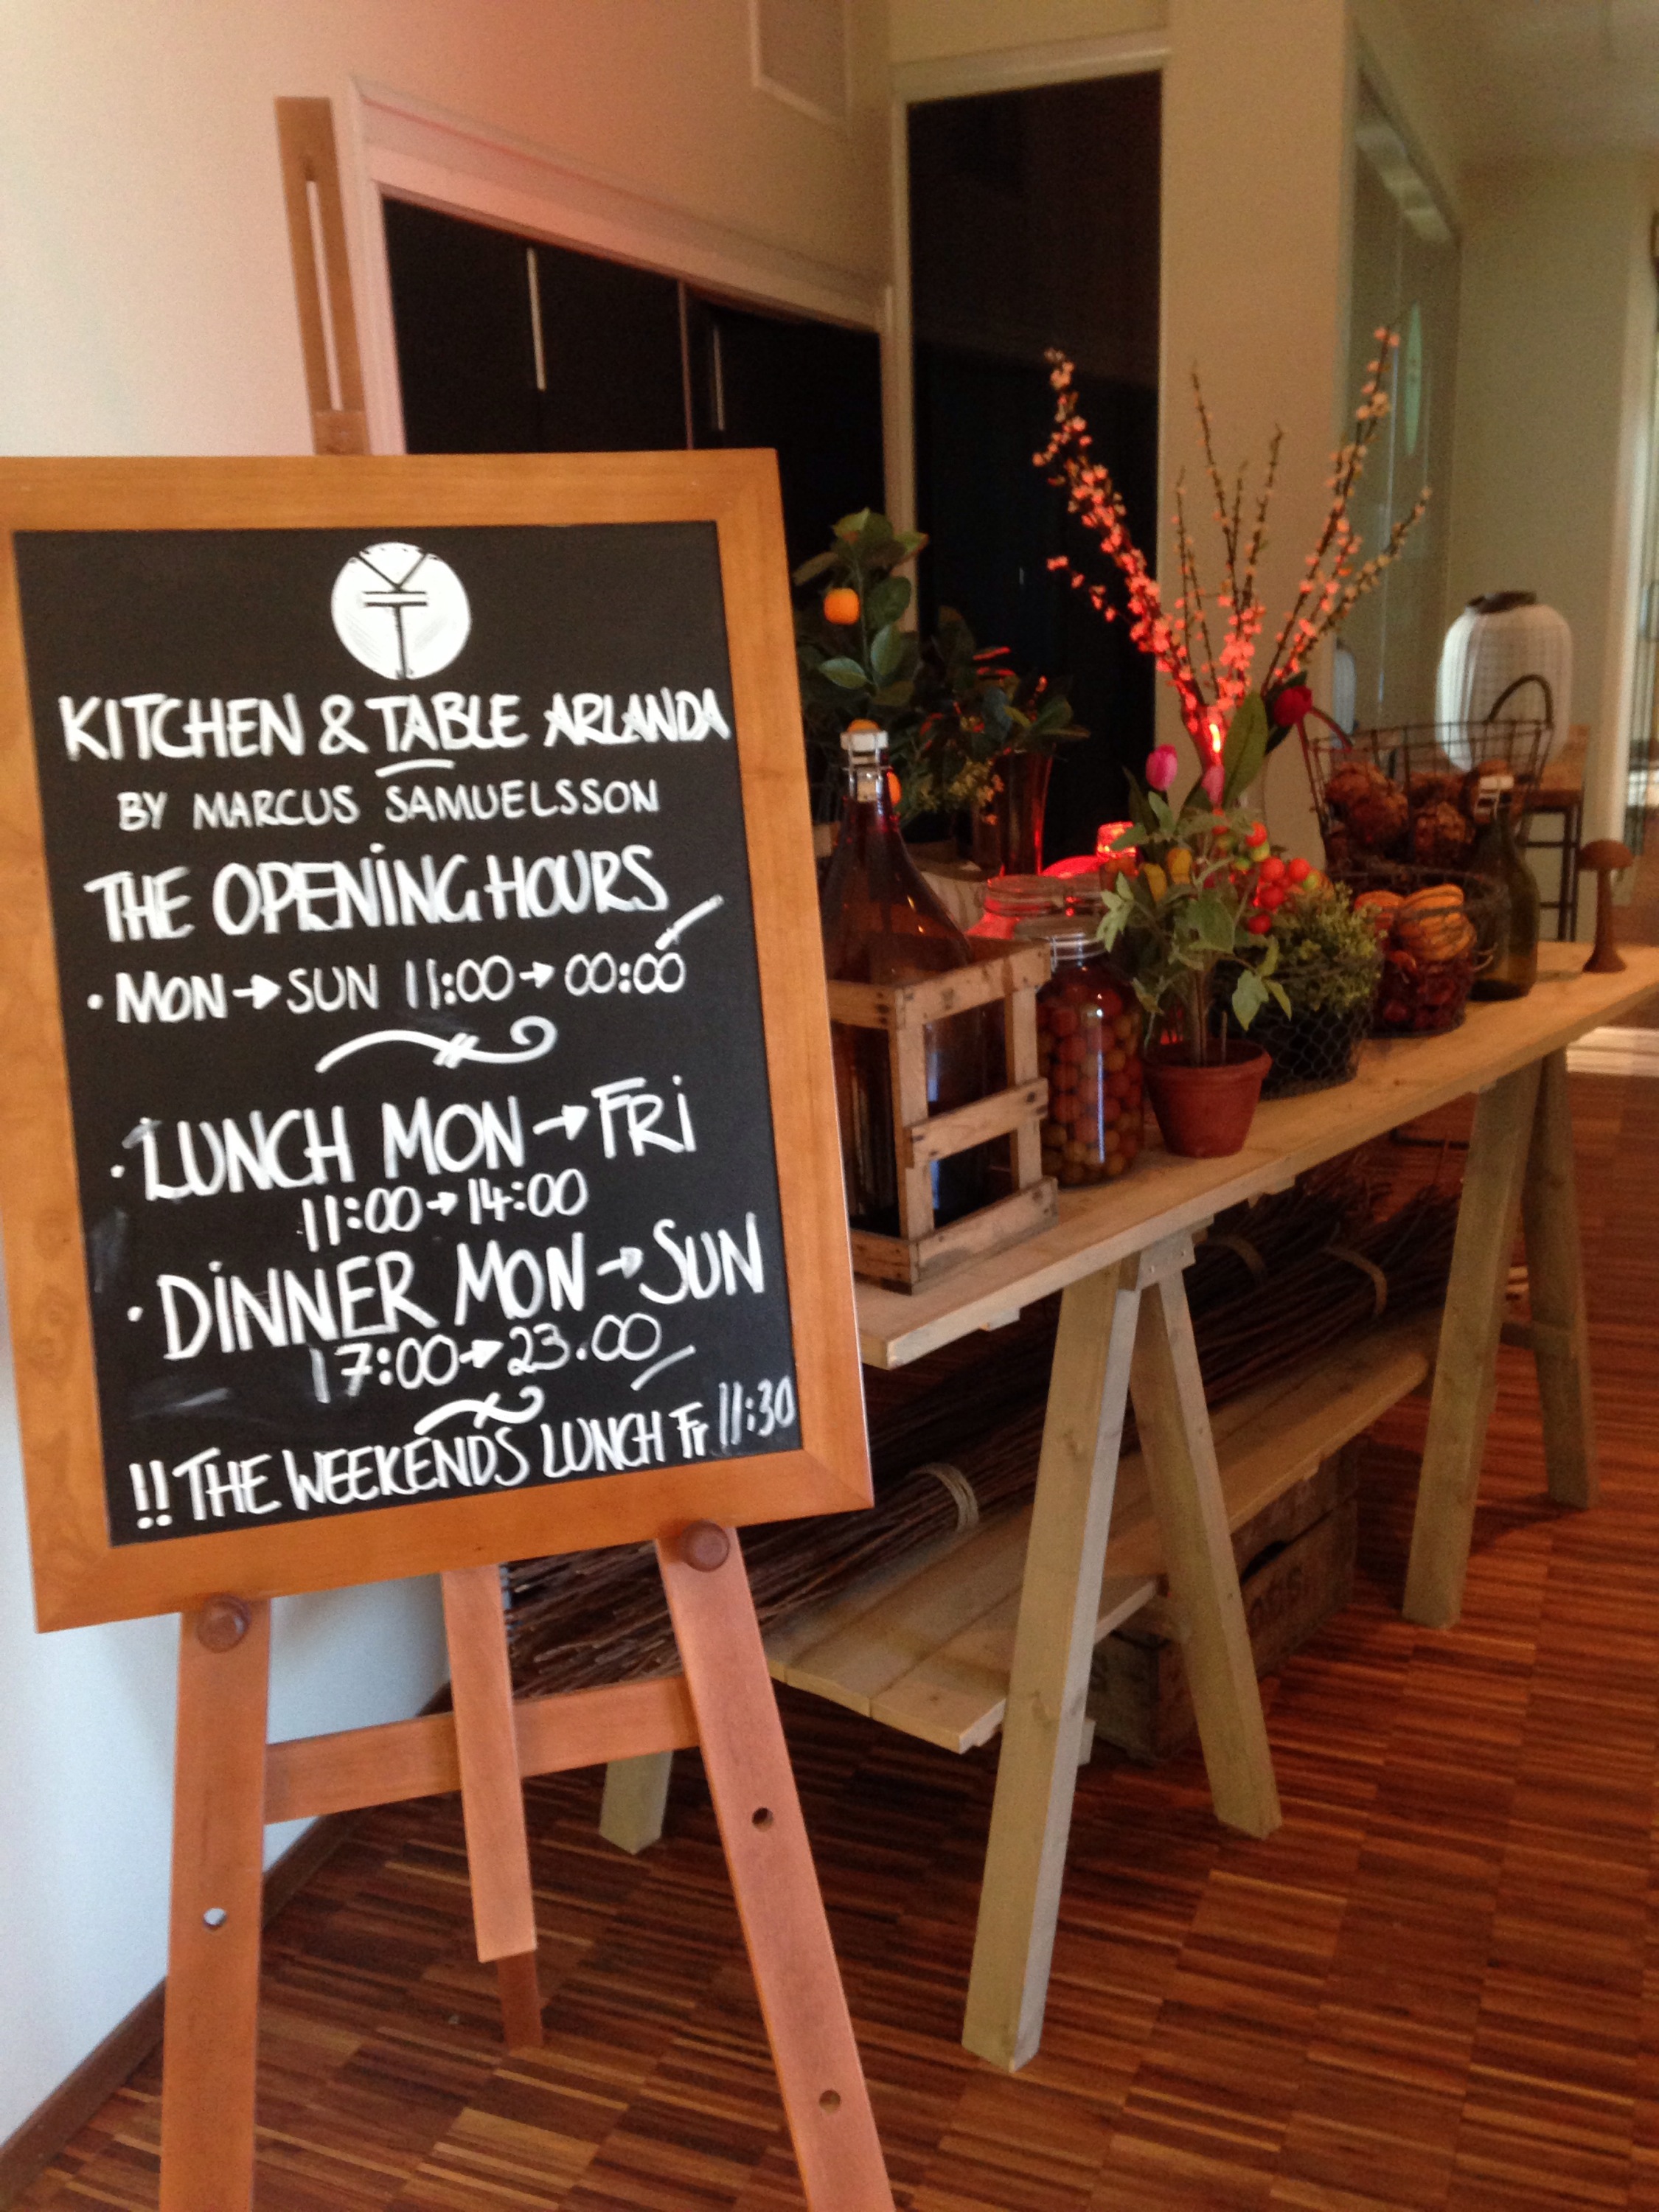 KT
KITCHEN & TABLE ARLANDA
BY MARCUS SAMUELSSON
THE OPENING HOURS
• MON → SUN 11:00 → 00:00
• LUNCH MON → FRi
11:00 → 14:00
• DiNNER MON → SUN
17:00 → 23.00
!! THE WEEKENDS LUNCH Fr 11:30